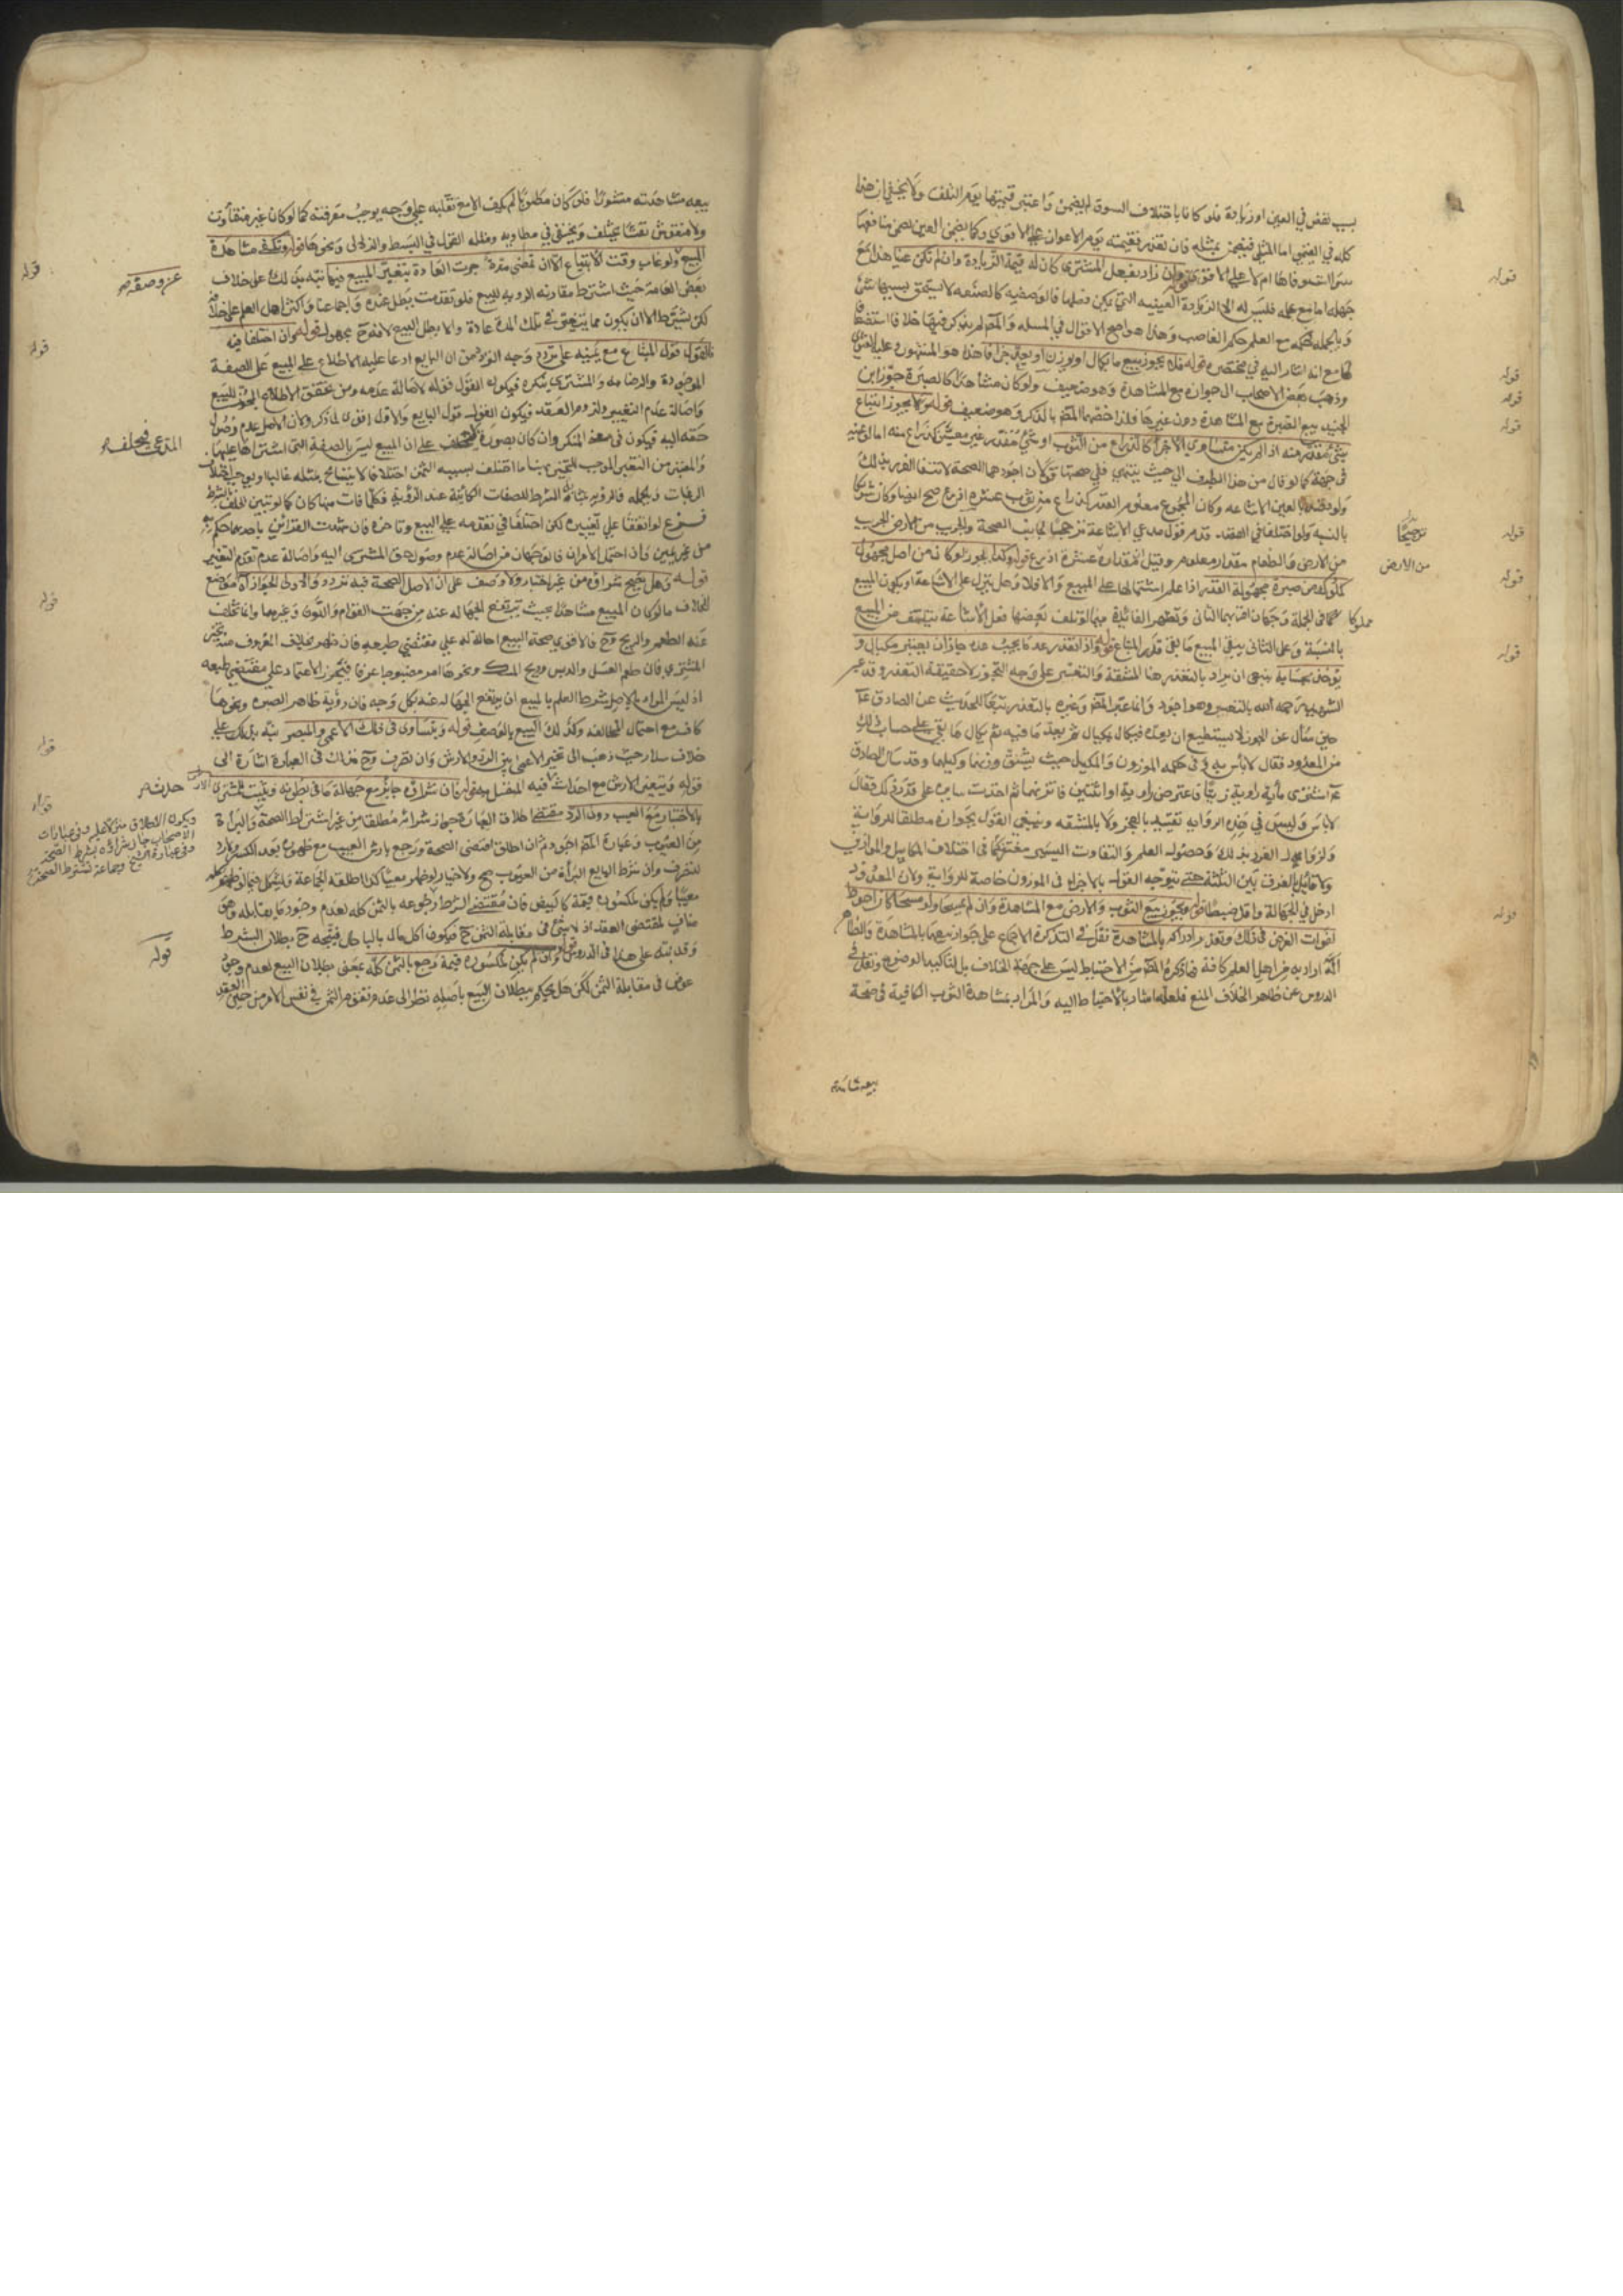 بسبب نقص في العين او زيادة فلو كانا باختلاف السوق لم يضمن واعتبر قيمتها يوم التلف ولا يخفى ان هذا
كله في القيمي اما المثلي فيضمن بمثله فان تعذر فقيمته يوم الاعواز على الاقوى وكما يضمن العين يضمن منافعها
سواء استوفاها ام لا على الاقوى قوله وان زاد بفعل المشتري كان له قيمة الزيادة وان لم تكن عينا هذا مع
جهله اما مع علمه فليس له الا الزيادة العينية التي يمكن فصلها فالوصفية كالصنعة لا يستحق بسببها شئ
وبالجملة فحكمه مع العلم حكم الغاصب وهذا هو اصح الاقوال في المسئلة والمصنف لم يذكر فيها خلافا استضعافا
لها مع انه اشار اليه في مختصره قوله فلا يجوز بيع ما يكال او يوزن او يعد جزافا هذا هو المشهور وعليه الفتوى
وذهب بعض الاصحاب الى جوازه مع المشاهدة وهو ضعيف قوله ولو كان مشاهدا كالصبرة جوز ابن
الجنيد بيع الصبرة مع المشاهدة دون غيرها فلذا خصها المصنف بالذكر وهو ضعيف قوله ولا يجوز ابتياع
شئ مقدر منه اذا لم يكن متساوي الاجزاء كالذراع من الثوب او شئ مقدر غير معين كذراع منه اما لو عينه
في جهة كما لو قال من هذا الطرف الى حيث ينتهي ففي صحته قولان اجودهما الصحة لانتفاء الغرر بذلك
ولو قصدا بالعين الاشاعة وكان المجموع معلوم القدر كذراع من ثوب عشرة اذرع صح ايضا وكان شريكا
بالنسبة ولو اختلفا في القصد قدم قول مدعي الاشاعة ترجيحا لجانب الصحة والجريب من الارض الجريب
من الارض والطعام مقدار معلوم وقيل انه قدر عشرة اذرع قوله وكذا يجوز لو كان من اصل مجهول
كمكوك من صبرة مجهولة القدر اذا علم اشتمالها على المبيع والا فلا وهل ينزل على الاشاعة او يكون المبيع
مكوكا في الجملة وجهان اقربهما الثاني وتظهر الفائدة فيما لو تلف بعضها فعلى الاشاعة يتلف من المبيع
بالنسبة وعلى الثاني يبقى المبيع ما بقي قدر المبتاع قوله واذا تعذر عد ما يجب عده جاز ان يعتبر بمكيال و
يؤخذ بحسابه ينبغي ان يراد بالتعذر هنا المشقة والتعسر على وجه التجوز لا حقيقة التعذر وقد عبر
الشهيد رحمه الله بالتعسر وهو اجود وانما عبر المصنف وغيره بالتعذر تبعا للحديث عن الصادق ع
حين سئل عن الجوز لا نستطيع ان نعده فيكال بمكيال ثم يعد ما فيه ثم يكال ما بقي على حساب ذلك
من المعدود فقال لا باس به وفي حكمه الموزون والمكيل حيث يشق وزنهما وكيلهما وقد سئل الصادق
ع اشترى مائة راوية زيتا فاعترض راوية او اثنتين فاتزنهما ثم اخذت سايره على قدر ذلك فقال
لا باس وليس في هذه الرواية تقييد بالعجز ولا بالمشقة وينبغي القول بجوازه مطلقا للرواية
ولزوال الغرر بذلك وحصول العلم والتفاوت اليسير مغتفر كما في اختلاف المكاييل والموازين
ولا قائل بالفرق بين الثلثة حتى يتوجه القول بالاجزاء في الموزون خاصة للرواية ولان المعدود
ادخل في الجهالة واقل ضبطا قوله ويجوز بيع الثوب والارض مع المشاهدة وان لم يمسحا ولو مسحا كان احوط
لتفاوت الغرض في ذلك وتعذر ادراكه بالمشاهدة نقل في التذكرة الاجماع على جواز بيعهما بالمشاهدة والظاهر
انه اراد به من اهل العلم كافة فما ذكره المصنف من الاحتياط ليس على جهة الخلاف بل لتاكيد الوضوح ونقل في
الدروس عن ظاهر الخلاف المنع فلعله اشار بالاحتياط اليه والمراد بمشاهدة الثوب الكافية في صحة
قوله
قوله
قوله
قوله
قوله
ترجيحا
من الارض
قوله
قوله
قوله
بيعه مشاهدته
بيعه مشاهدته منشورا فلو كان مطويا لم يكف الا مع تقليبه على وجه يوجب معرفته كما لو كان غير متفاوت
ولا منقوش نقشا يختلف ويختفي في مطاويه ومثله القول في البسط والزلالي ونحوها قوله وتكفي مشاهدة
المبيع ولو غاب وقت الابتياع الا ان تمضي مدة جرت العادة بتغير المبيع فيها نبه بذلك على خلاف
بعض العامة حيث اشترط مقارنة الرؤية للبيع فلو تقدمت بطل عنده واجماعنا واكثر اهل العلم على خلافه
لكن يشترط الا ان يكون مما يتغير في تلك المدة عادة والا بطل البيع لانه ح مجهول قوله وان اختلفا فيه
فالقول قول المبتاع مع يمينه على تردد وجه التردد من ان البايع ادعا عليه الاطلاع على المبيع على الصفة
الموجودة والرضا به والمشتري ينكره فيكون القول قوله لاصالة عدمه ومن تحقق الاطلاع المجوز للبيع
واصالة عدم التغيير ولزوم العقد فيكون القول قول البايع والاول اقوى لما ذكر ولان الاصل عدم وصول
حقه اليه فيكون في معنى المنكر وان كان بصورة المدعي فيحلف على ان المبيع ليس بالصفة التي اشتراها عليها
والمعتبر من التغير الموجب للتخيير هنا ما اختلف بسببه الثمن اختلافا لا يتسامح بمثله غالبا او يوجب اختلاف
الرغبات وبالجملة فالرؤية بمثابة الشرط للصفات الكائنة عند الرؤية فكلما فات منها كان كما لو تبين تخلف الشرط
فرع لو اتفقا على تغييره لكن اختلفا في تقدمه على البيع وتاخره فان شهدت القرائن باحدهما حكم به
من غير يمين وان احتمل الامران فالوجهان من اصالة عدم وصول حق المشتري اليه واصالة عدم تقدم التغيير
قوله وهل يصح شراؤه من غير اختبار ولا وصف على ان الاصل الصحة فيه تردد والاولى الجواز موضع
الخلاف ما لو كان المبيع مشاهدا بحيث يرتفع الجهالة عنه من جهة القوام واللون وغيرهما وانما تخلف
عنه الطعم والريح وح فالاقوى صحة البيع احالة له على مقتضى طبعه فان ظهر بخلاف المعروف منه تخير
المشتري فان طعم العسل والدبس وريح المسك ونحوها امر مضبوط عرفا فيجوز الاعتماد على مقتضى طبعه
اذ ليس المراد بالاصل شرط العلم بالمبيع ان يرتفع الجهالة عنه بكل وجه فان رؤية ظاهر الصبرة ونحوها
كاف مع احتمال المخالفة وكذلك البيع بالوصف قوله ويتساوى في ذلك الاعمى والمبصر نبه بذلك على
خلاف سلار حيث ذهب الى تخير الاعمى بين الرد والارش وان تصرف وح فذاك في العبارة اشارة الى
قوله ويتعين الارش مع احداثه فيه المفسد بعد قوله فان شراؤه جايز مع جهالة ما في بطونه ويثبت للمشتري الارش
بالاختبار مع العيب دون الرد مقتضى اطلاق العبارة جواز شرائه مطلقا من غير اشتراط الصحة والبراءة
من العيوب وعبارة المصنف اجود ثم ان اطلق اقتضى الصحة ورجع بارش العيب مع ظهوره بعد الكسر ولا رد
للتصرف وان شرط البايع البراءة من العيوب صح ولا خيار لو ظهر معيبا كذا اطلقه الجماعة ويشكل فيما لو ظهر كله
معيبا ولم يكن لمكسوره قيمة كالبيض فان مقتضى الشرط رجوعه بالثمن كله لعدم وجود ما يقابله وهو
مناف لمقتضى العقد اذ لا شئ في مقابلة الثمن ح فيكون اكل مال بالباطل فيتجه ح بطلان الشرط
وقد نبه على هذا في الدروس قوله وان لم يكن لمكسوره قيمة رجع بالثمن كله بمعنى بطلان البيع لعدم وجود
عوض في مقابلة الثمن لكن هل يحكم ببطلان البيع باصله نظرا الى عدم تقوم الثمن في نفس الامر من حين العقد
قوله
قوله
المدعي فيحلف صح
قوله
قوله
حدث صح
قوله
قوله